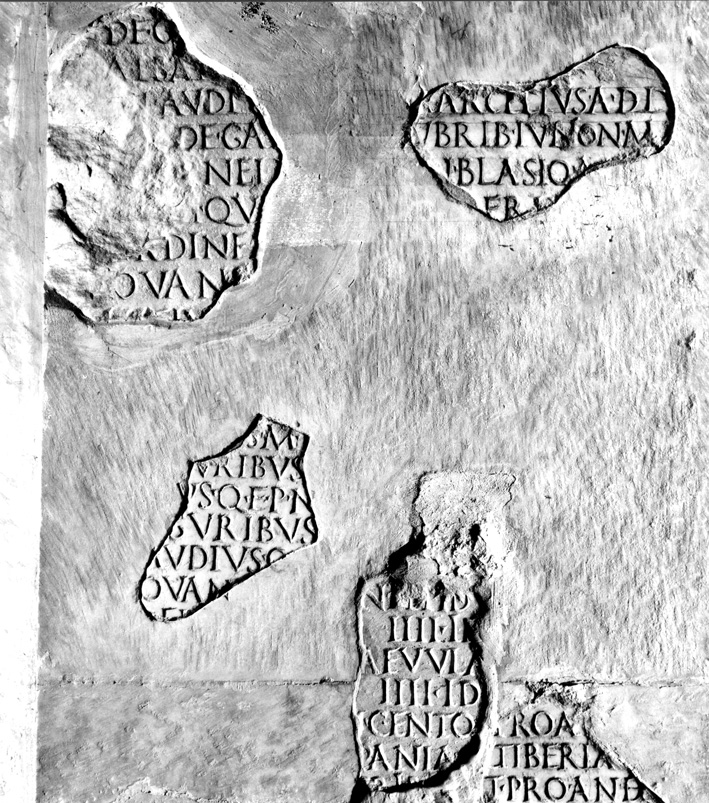 DEG
ALSA
AUDI
DE·GA
NEI
QV
DINE
QVAN
ARCELIVS·A·DI
VBRIB·IVNON·M
BLASIO
ER
S·M
VRIBVS
VS·Q·F·P·N
GVRIBVS
AVDIVS
QVAN
IIII·I
AEVVLA
IIII·ID
CENTO
PANIA
PROA
TIBERIA
T·PROAND